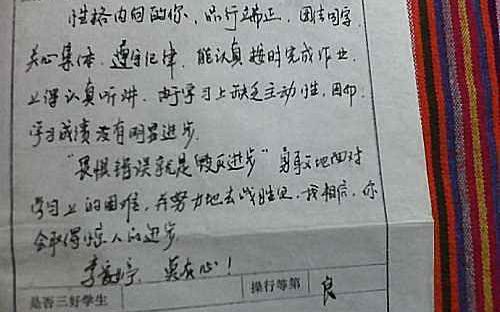 性格内向的你，品行端正，团结同学
关心集体，遵守纪律，能认真按时完成作业
上课认真听讲，由于学习上缺乏主动性，因此
学习成绩没有明显进步。
"畏惧错误就是毁灭进步"勇敢地面对
学习上的困难，并努力地去战胜它，我相信，你
会取得惊人的进步
李 莫灰心！
是否三好学生 操行等第 良